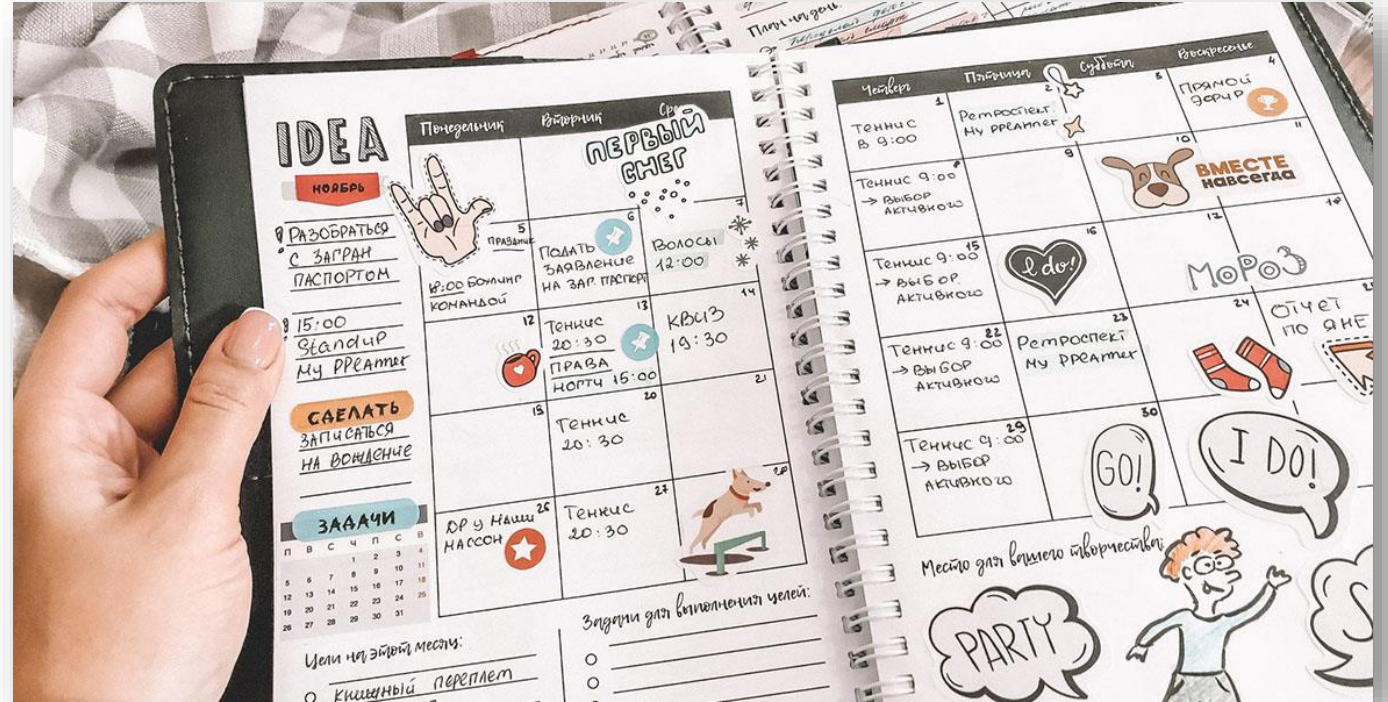 План на день:
IDEA
НОЯБРЬ
РАЗОБРАТЬСЯ
С ЗАГРАН
ПАСПОРТОМ
15:00
StandUP
My PPEAMTEr
СДЕЛАТЬ
ЗАПИСАТЬСЯ
НА ВОЖДЕНИЕ
ЗАДАЧИ
П В С Ч П С В
1 2 3 4
5 6 7 8 9 10 11
12 13 14 15 16 17 18
19 20 21 22 23 24 25
26 27 28 29 30 31
Понедельник Вторник Ср
ПЕРВЫЙ
СНЕГ
5
ПРАЗДНИК
18:00 БОУЛИНГ
КОМАНДОЙ
6
ПОДАТЬ
ЗАЯВЛЕНИЕ
НА ЗАГ. ПАСПОРТ
7
ВОЛОСЫ
12:00
12
13
ТЕННИС
20:30
ПРАВА
НОГТИ 15:00
14
КВИЗ
19:30
19
20
ТЕННИС
20:30
21
26
ДР У МАШИ
НАССОН
27
ТЕННИС
20:30
28
Цели на этот месяц:
КНИЖНЫЙ ПЕРЕПЛЕТ
Задачи для выполнения целей:
Четверг Пятница Суббота Воскресенье
1
ТЕННИС
В 9:00
2
РЕТРОСПЕКТ.
My PPEAMTEr
3
4
ПРЯМОЙ
ЭФИР
8
ТЕННИС 9:00
→ ВЫБОР
АКТИВНОГО
9
10
ВМЕСТЕ
НАВСЕГДА
11
15
ТЕННИС 9:00
→ ВЫБОР
АКТИВНОГО
16
I do!
17
МОРОЗ
22
ТЕННИС 9:00
→ ВЫБОР
АКТИВНОГО
23
РЕТРОСПЕКТ
My PPEAMTEr
24
ОТЧЕТ
ПО ЯНЕ
29
ТЕННИС 9:00
→ ВЫБОР
АКТИВНОГО
30
GO!
I DO!
Место для вашего творчества:
PARTY